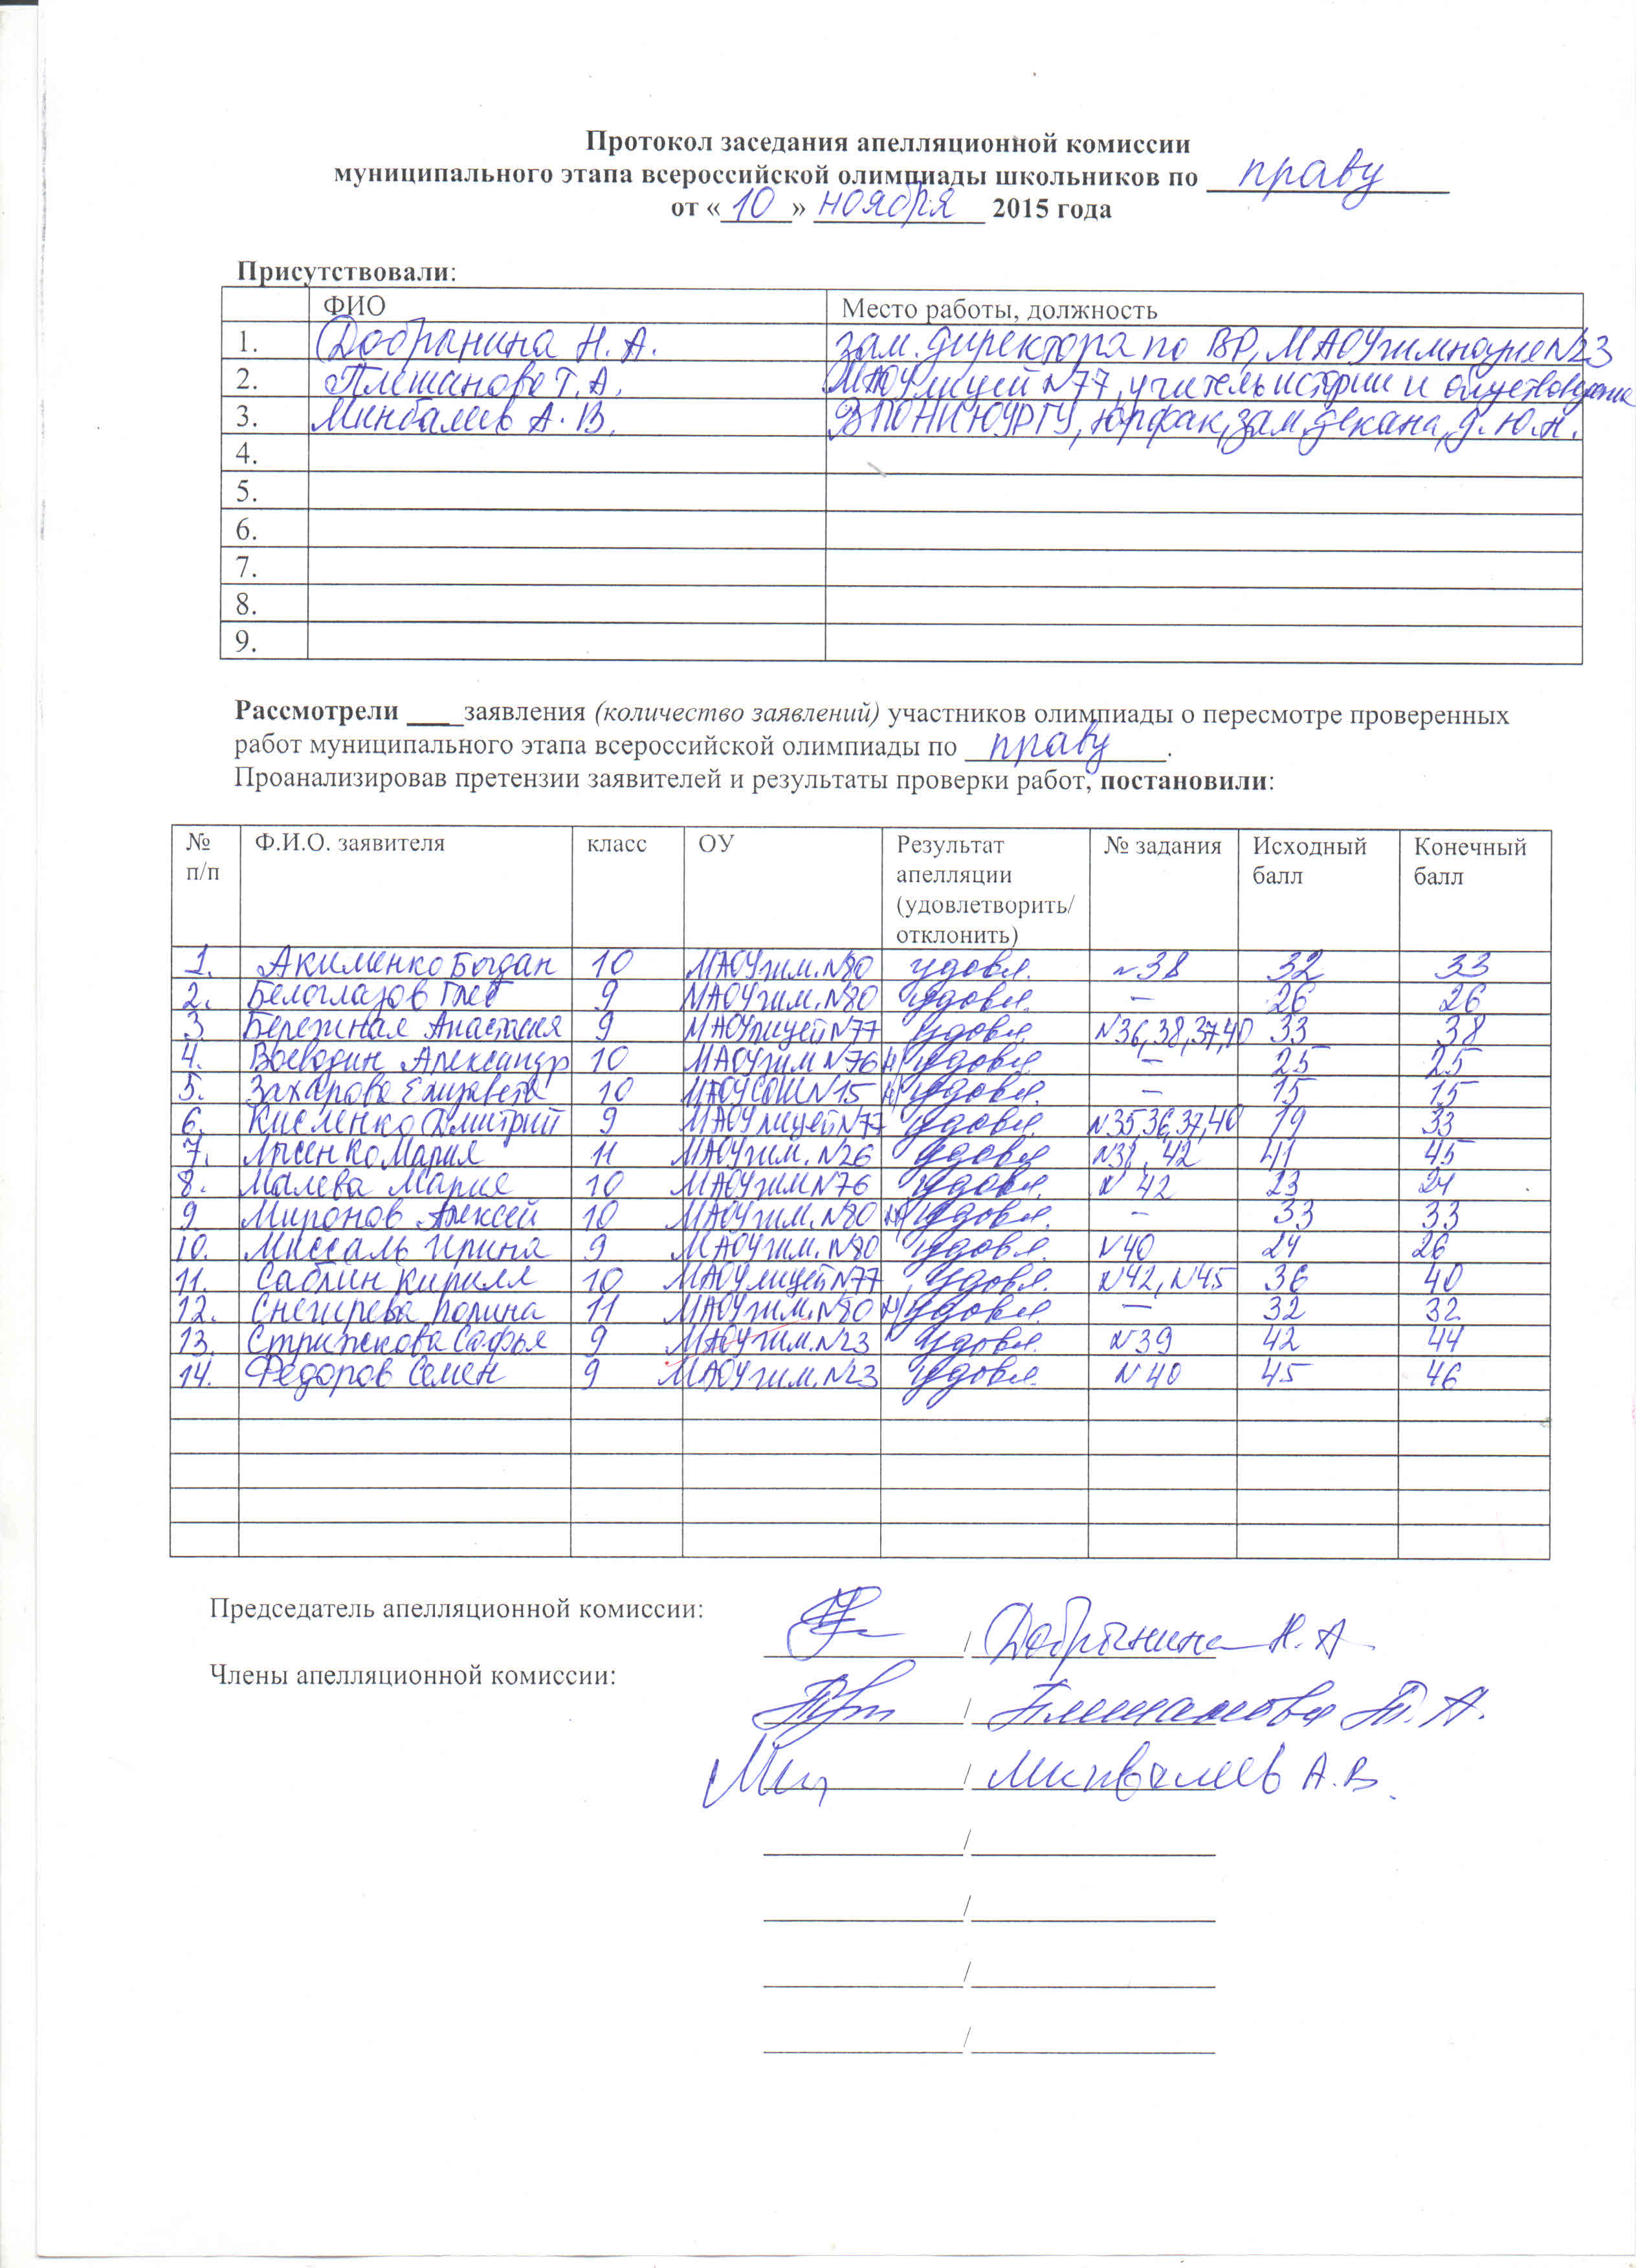 Протокол заседания апелляционной комиссии
муниципального этапа всероссийской олимпиады школьников по праву
от «10» ноября 2015 года
Присутствовали:
ФИО Место работы, должность
1. Добрынина Н. А. зам. директора по ВР, МАОУ гимназия №23
2. Плешанова Т. А. МАОУ лицей №77, учитель истории и обществознания
3. Минбалеев А. В. ЮУРГУ, юрфак, зам. декана, д. ю. н.
4.
5.
6.
7.
8.
9.
Рассмотрели ____заявления (количество заявлений) участников олимпиады о пересмотре проверенных
работ муниципального этапа всероссийской олимпиады по праву.
Проанализировав претензии заявителей и результаты проверки работ, постановили:
№ п/п Ф.И.О. заявителя класс ОУ Результат апелляции (удовлетворить/ отклонить) № задания Исходный балл Конечный балл
1. Акименко Богдан 10 МАОУ гим. №80 удовл. №38 32 33
2. Белоглазов Глеб 9 МАОУ гим. №80 удовл. — 26 26
3 Бережная Анастасия 9 МАОУ лицей №77 удовл. №36,38,37,40 33 38
4. Воеводин Александр 10 МАОУ гим №76 н/удовл — 25 25
5. Захарова Елизавета 10 МАОУ СОШ №15 н/удовл. — 15 15
6. Кисленко Дмитрий 9 МАОУ лицей №77 удовл. №35,36,37,40 19 33
7. Лысенко Мария 11 МАОУ гим. №26 удовл №38, 42 41 45
8. Малева Мария 10 МАОУ гим №76 удовл. № 42 23 24
9. Миронов Алексей 10 МАОУ гим. №80 н/удовл. — 33 33
10. Миссаль Ирина 9 МАОУ гим. №80 удовл. №40 24 26
11. Саблин Кирилл 10 МАОУ лицей №77 удовл. №42, №45 36 40
12. Снегирева Полина 11 МАОУ гим. №80 н/удовл. — 32 32
13. Стрижкова Софья 9 МАОУ гим. №23 удовл. №39 42 44
14. Федоров Семен 9 МАОУ гим. №23 удовл. №40 45 46
Председатель апелляционной комиссии: / Добрынина Н. А
Члены апелляционной комиссии:
/ Плешанова Т. А.
/ Минбалеев А. В.
/
/
/
/